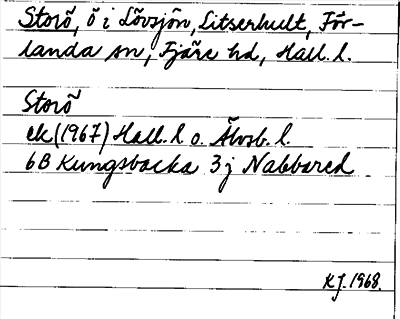 Storö, ö i Lövsjön, Litserhult, För-
landa sn, Fjäre hd, Hall. l.
Storö
ek (1967) Hall. l. o. Älvsb. l.
6B Kungsbacka 3j Nabbared
KJ. 1968.